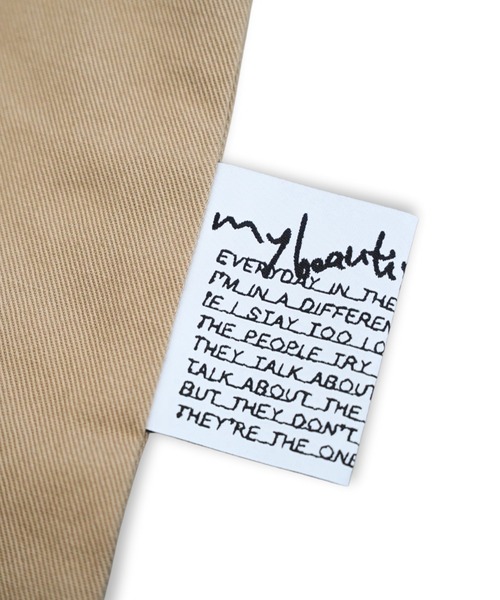 my beauti
EVERYDAY IN THE
I'M IN A DIFFEREN
IF I STAY TOO LO
THE PEOPLE TRY
THEY TALK ABOUT
TALK ABOUT THE
BUT THEY DON'T
THEY'RE THE ONE